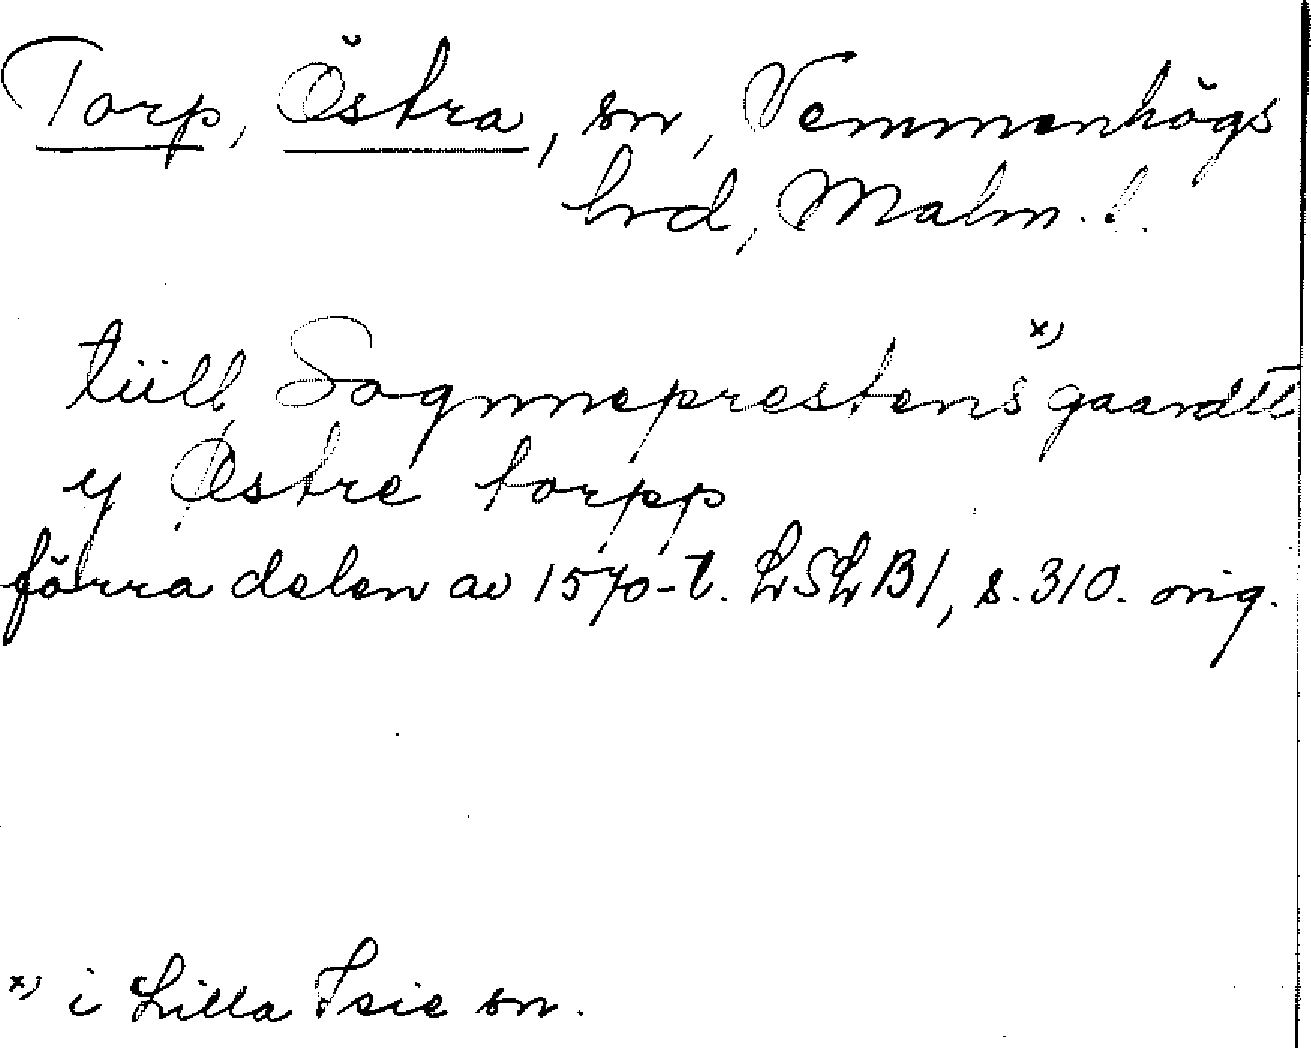 Torp, Östra, sn, Vemmenhögs
hrd, Malm. l.
tiill Sognneprestens x) gaardtt
y Østre torpp
förra delen av 1570-t. LSLB1, s. 310. orig.
x) i Lilla Isie sn.